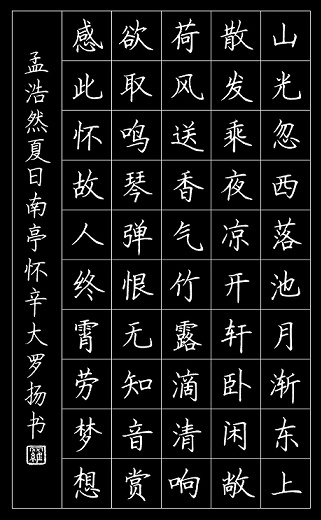 山光忽西落池月渐东上
散发乘夜凉开轩卧闲敞
荷风送香气竹露滴清响
欲取鸣琴弹恨无知音赏
感此怀故人终霄劳梦想
孟浩然夏日南亭怀辛大罗扬书